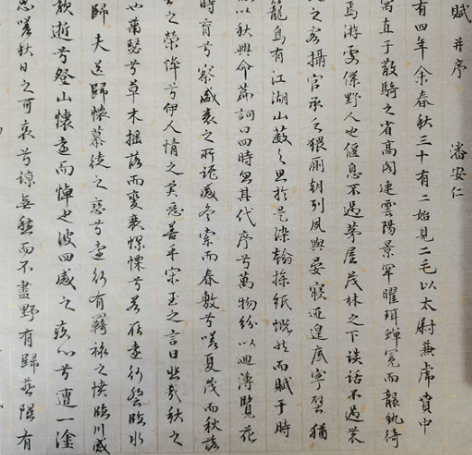 賦 并序 潘安仁
有四年余春秋三十有二始見二毛以太尉兼虎賁中
寓直于散騎之省高閣連雲陽景罕曜珥蟬冕而襲紈綺
焉游處僕野人也偃息不過茅屋茂林之下談話不過農
之客攝官承乏猥廁朝列夙興晏寢匪遑底寧譬猶
籠鳥有江湖山藪之思於是染翰操紙慨然而賦于時
以秋興命篇詞曰四時忽其代序兮萬物紛以迴薄覽花
時育兮察盛衰之所託感冬索而春敷兮嗟夏茂而秋落
之榮悴兮伊人情之美惡善乎宋玉之言曰悲哉秋之
也蕭瑟兮草木搖落而變衰憭慄兮若在遠行登臨水
歸夫送歸懷慕徒之戀兮遠行有羈旅之憤臨川感
歎逝兮登山懷遠而悼近彼四慼之疚心兮遭一塗
忍嗟秋日之可哀兮諒無愁而不盡野有歸燕隰有